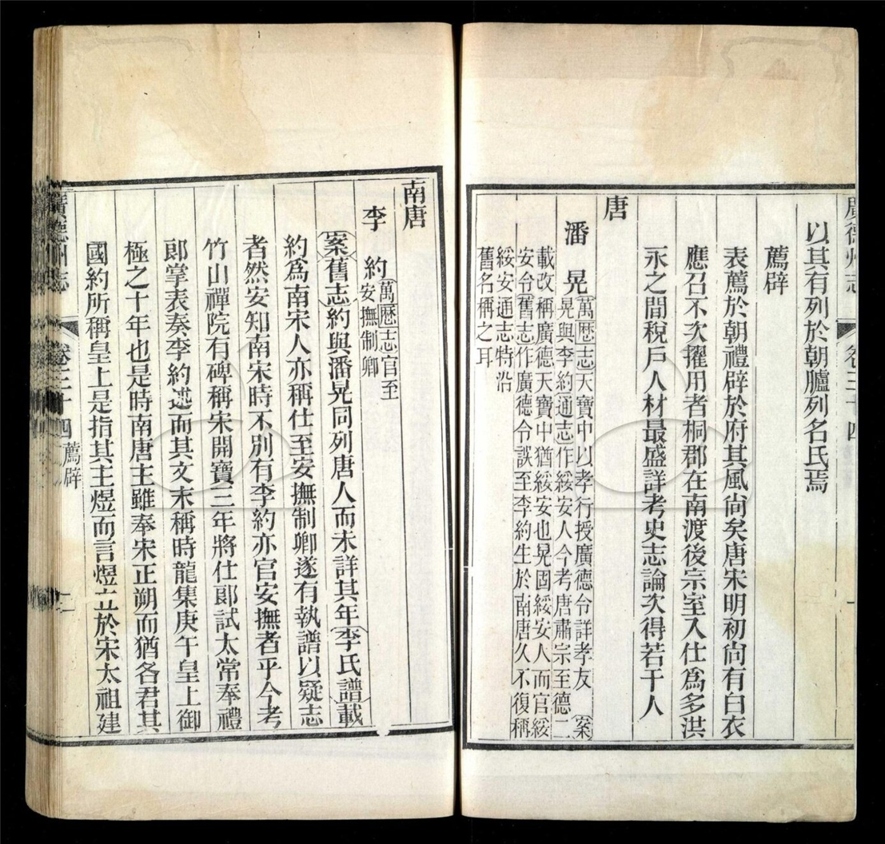 廣德州志 卷三十四
以其有列於朝臚列名氏焉
薦辟
表薦於朝禮辟於府其風尚矣唐宋明初尚有白衣
應召不次擢用者桐郡在南渡後宗室入仕爲多洪
永之間稅戶人材最盛詳考史志論次得若干人
唐
潘晃
萬歷志天寶中以孝行授廣德令詳孝友 案
晃與李約通志作綏安人今考唐肅宗至德二
載改稱廣德天寶中猶綏安也晃固綏安人而官綏
安令舊志作廣德令誤至李約生於南唐久不復稱
綏安通志特沿
舊名稱之耳
南唐
李 約
萬歷志官至
安撫制卿
案舊志約與潘晃同列唐人而未詳其年李氏譜載
約爲南宋人亦稱仕至安撫制卿遂有執譜以疑志
者然安知南宋時不別有李約亦官安撫者乎今考
竹山禪院有碑稱宋開寶三年將仕郞試太常奉禮
郞掌表奏李約述而其文末稱時龍集庚午皇上御
極之十年也是時南唐主雖奉宋正朔而猶各君其
國約所稱皇上是指其主煜而言煜立於宋太祖建
廣德州志 卷三十四 薦辟 一